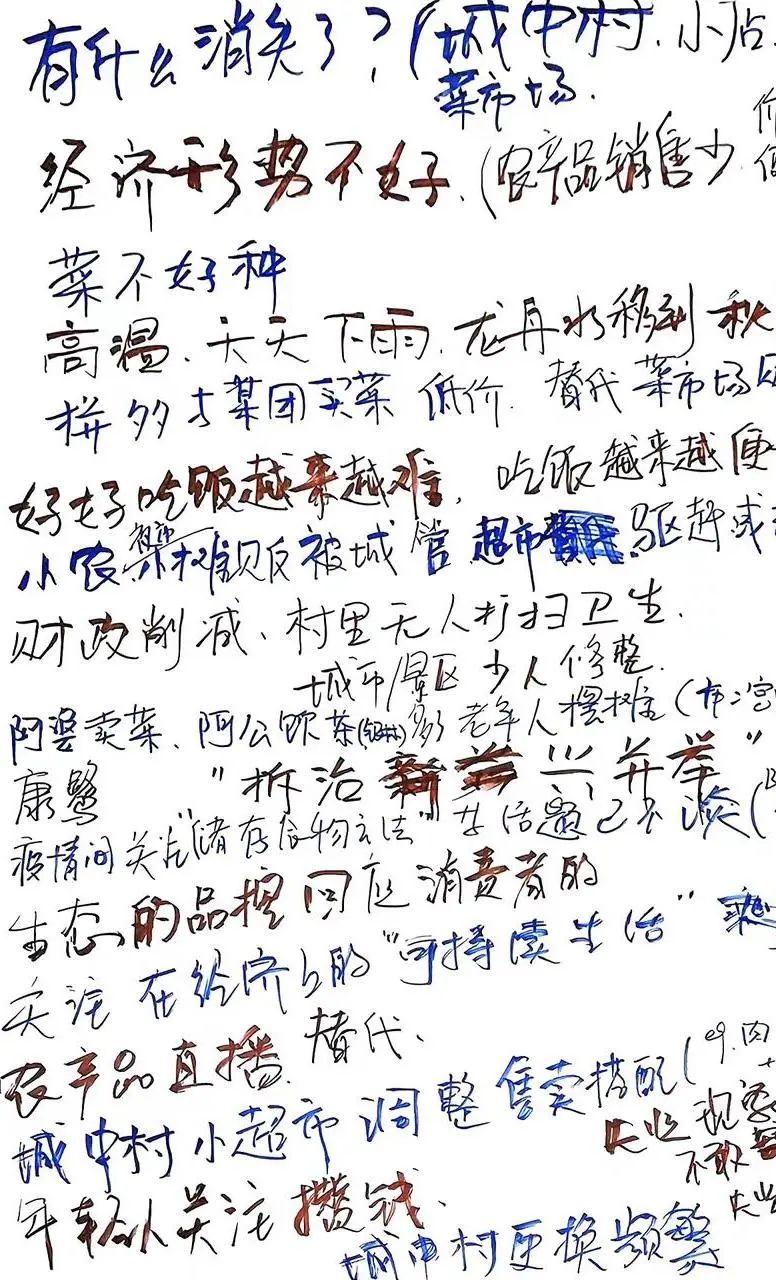 有什么消失了？（城中村、小店
菜市场．
经济形势不好．（农产品销售少 价
菜不好种
高温．天天下雨．龙舟水移到秋
拼多多 某团买菜 低价．替代菜市场
好好吃饭越来越难．吃饭越来越便
小农 摆摊贩被城管 超市 驱赶
财政削减、村里无人打扫卫生．
城市/景区 少人修整．
阿婆卖菜、阿公饮茶 老年人摆摊（
康鹭 "拆治兴并举"
疫情间关注"储存食物方法" 话题已不谈（
生态的品控回应消费者的
关注 在经济上的"可持续生活"
农产品直播．替代、
城中村小超市调整售卖搭配（eg.肉
失业
不敢
年轻人关注攒钱、
城中村更换频繁